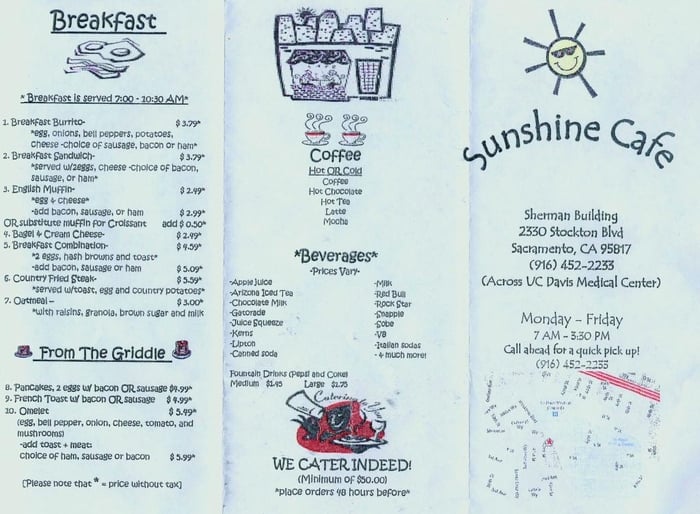 Breakfast
*Breakfast is served 7:00 - 10:30 AM*
1. Breakfast Burrito- $3.79*
*egg, onions, bell peppers, potatoes,
cheese -choice of sausage, bacon or ham*
2. Breakfast Sandwich- $3.79*
*served w/2eggs, cheese -choice of bacon,
sausage, or ham*
3. English Muffin- $2.49*
*egg & cheese*
-add bacon, sausage, or ham $2.99*
OR substitute muffin for Croissant add $0.50*
4. Bagel & Cream Cheese- $2.49*
5. Breakfast Combination- $4.59*
*2 eggs, hash browns and toast*
-add bacon, sausage or ham $5.09*
6. Country Fried Steak- $5.59*
*served w/toast, egg and country potatoes*
7. Oatmeal- $3.00*
*with raisins, granola, brown sugar and milk
From The Griddle
8. Pancakes, 2 eggs w/ bacon OR sausage $4.99*
9. French Toast w/ bacon OR sausage $4.99*
10. Omelet $5.49*
(egg, bell pepper, onion, cheese, tomato, and
mushrooms)
-add toast + meat:
choice of ham, sausage or bacon $5.99*
[Please note that * = price without tax]
Coffee
Hot OR Cold
Coffee
Hot Chocolate
Hot Tea
Latte
Mocha
*Beverages*
-Prices Vary-
-Apple Juice
-Arizona Iced Tea
-Chocolate Milk
-Gatorade
-Juice Squeeze
-Kerns
-Lipton
-Canned soda
-Milk
-Red Bull
-Rock Star
-Snapple
-Sobe
-V8
-Italian sodas
- & much more!
Fountain Drinks (Pepsi and Coke)
Medium $1.45 Large $1.75
WE CATER INDEED!
(Minimum of $50.00)
*place orders 48 hours before*
Sunshine Cafe
Sherman Building
2330 Stockton Blvd
Sacramento, CA 95817
(916) 452-2233
(Across UC Davis Medical Center)
Monday - Friday
7 AM - 3:30 PM
Call ahead for a quick pick up!
(916) 452-2233